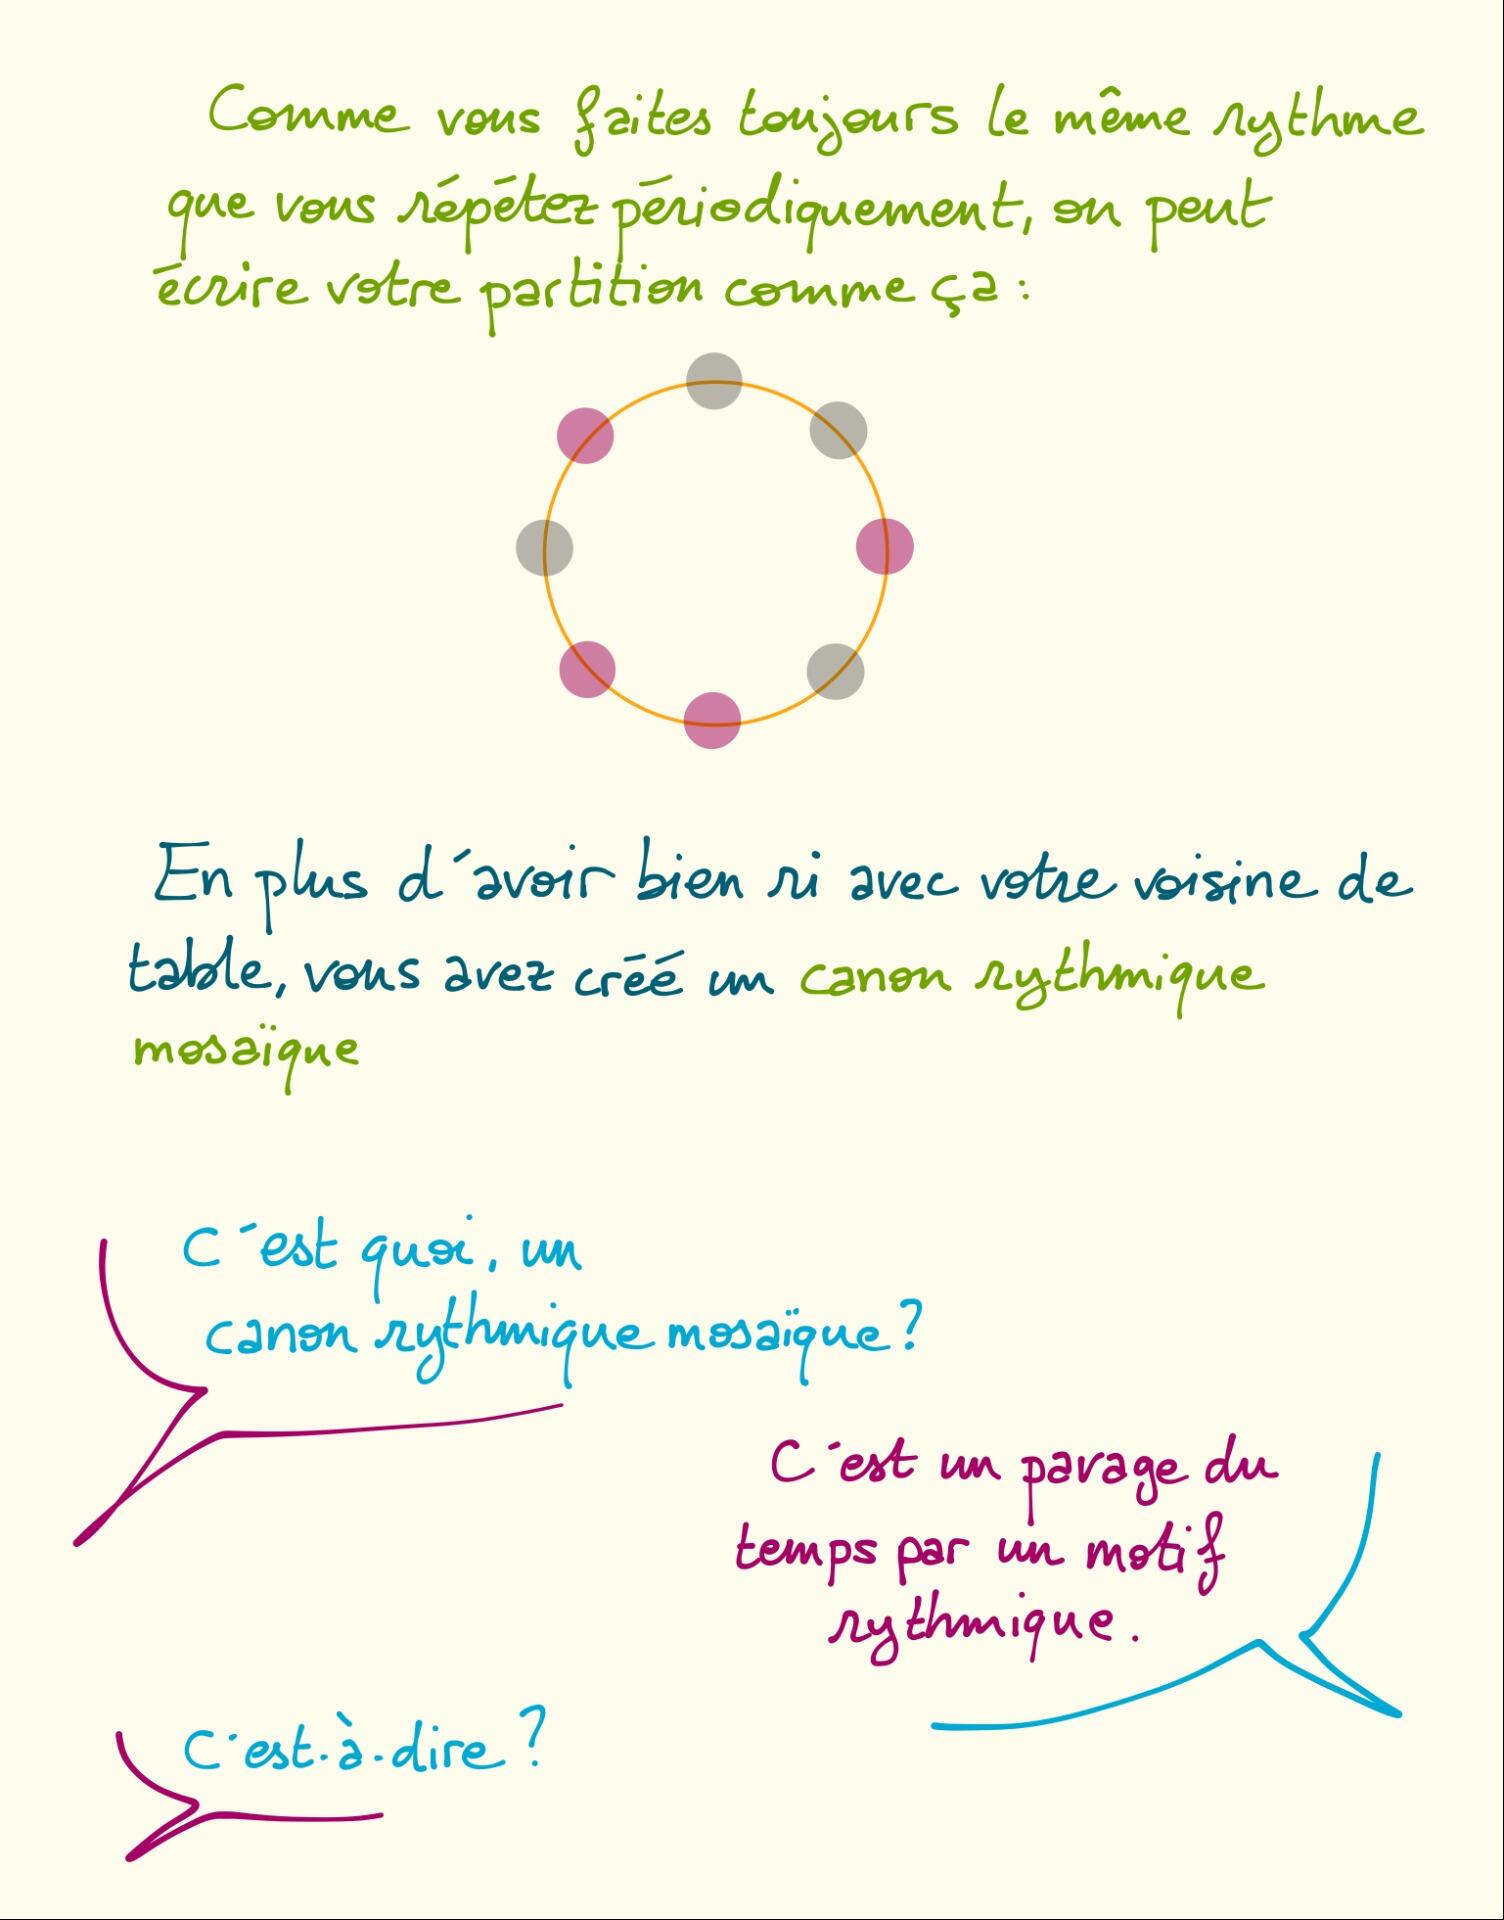 Comme vous faites toujours le même rythme
que vous répétez périodiquement, on peut
écrire votre partition comme ça :
En plus d'avoir bien ri avec votre voisine de
table, vous avez créé un canon rythmique
mosaïque
C'est quoi, un
canon rythmique mosaïque ?
C'est un pavage du
temps par un motif
rythmique.
C'est-à-dire ?